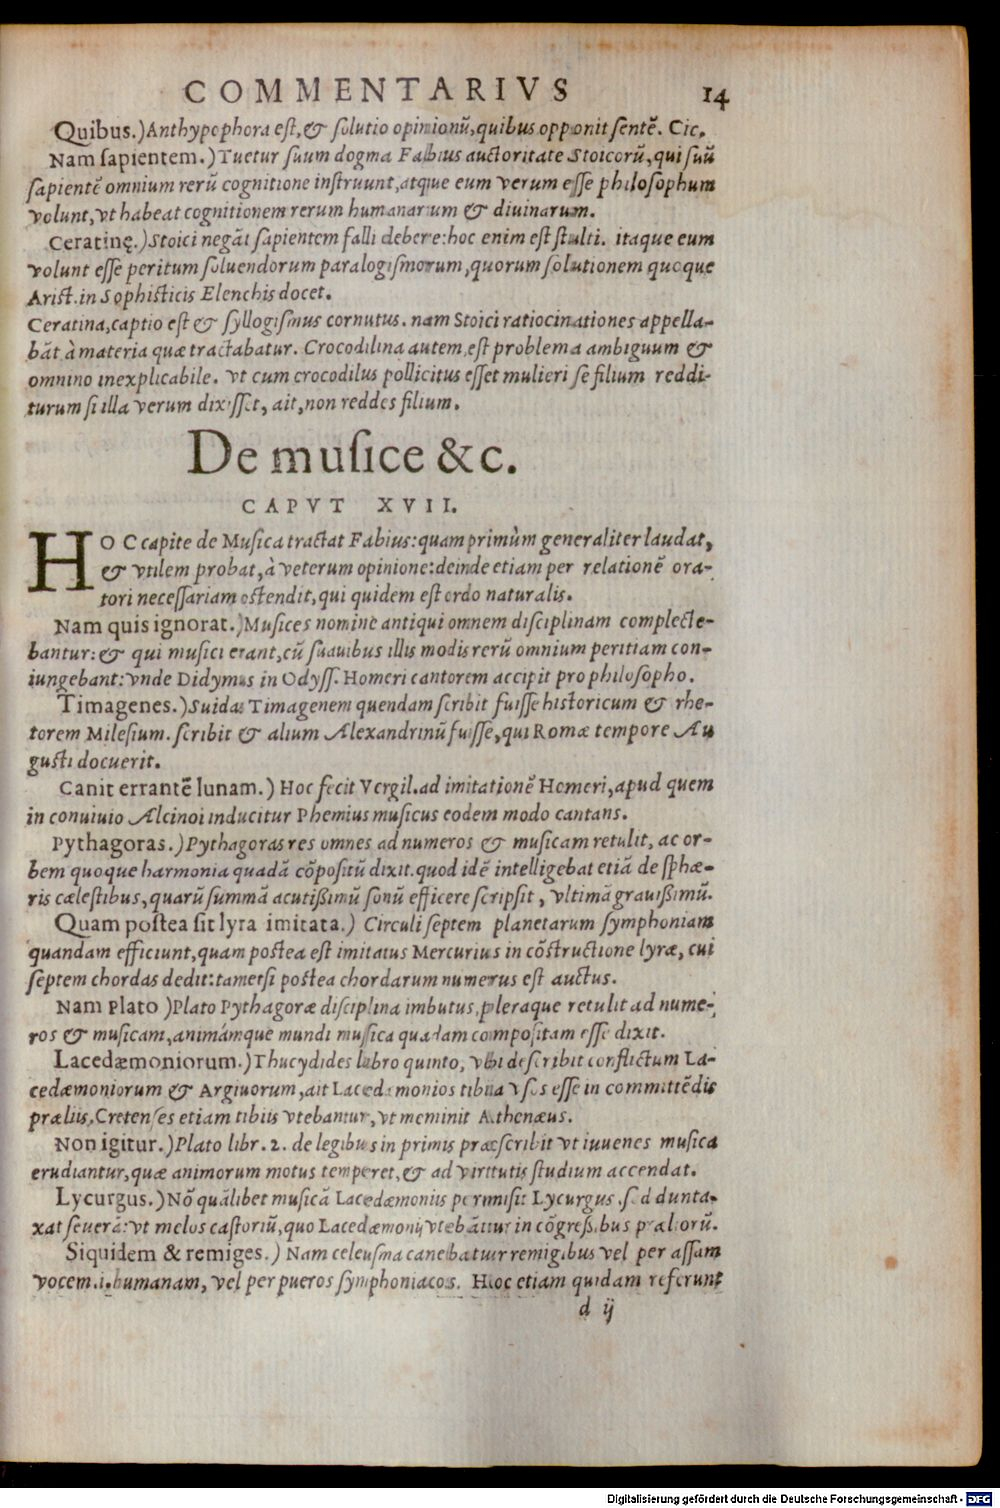 COMMENTARIVS 14
Quibus.)Anthypophora est,& solutio opinionũ,quibus opponit sentẽ. Cic.
Nam sapientem.)Tuetur suum dogma Fabius auctoritate Stoicorũ,qui suũ
sapientẽ omnium rerũ cognitione instruunt,atque eum verum esse philosophum
volunt,vt habeat cognitionem rerum humanarum & diuinarum.
Ceratinę.)Stoici negãt sapientem falli debere:hoc enim est stulti. itaque eum
volunt esse peritum soluendorum paralogismorum,quorum solutionem quoque
Arist.in Sophisticis Elenchis docet.
Ceratina,captio est & syllogismus cornutus. nam Stoici ratiocinationes appella-
bãt à materia quæ tractabatur. Crocodilina autem,est problema ambiguum &
omnino inexplicabile. vt cum crocodilus pollicitus esset mulieri se filium reddi-
turum si illa verum dixisset, ait,non reddes filium.
De musice &c.
CAPVT XVII.
HOC capite de Musica tractat Fabius:quam primùm generaliter laudat,
& vtilem probat,à veterum opinione:deinde etiam per relationẽ ora-
tori necessariam ostendit,qui quidem est ordo naturalis.
Nam quis ignorat.)Musices nomine antiqui omnem disciplinam complecte-
bantur:& qui musici erant,cũ suauibus illis modis rerũ omnium peritiam con-
iungebant:vnde Didymus in Odyss. Homeri cantorem accipit pro philosopho.
Timagenes.)Suidas Timagenem quendam scribit fuisse historicum & rhe-
torem Milesium. scribit & alium Alexandrinũ fuisse,qui Romæ tempore Au
gusti docuerit.
Canit errantẽ lunam.) Hoc fecit Vergil.ad imitationẽ Homeri,apud quem
in conuiuio Alcinoi inducitur Phemius musicus eodem modo cantans.
Pythagoras.)Pythagoras res omnes ad numeros & musicam retulit, ac or-
bem quoque harmonia quadã cõpositũ dixit.quod idẽ intelligebat etiã de sphæ-
ris cælestibus,quarũ summã acutißimũ sonũ efficere scripsit, vltimã grauißimũ.
Quam postea sit lyra imitata.) Circuli septem planetarum symphoniam
quandam efficiunt,quam postea est imitatus Mercurius in cõstructione lyræ, cui
septem chordas dedit:tametsi postea chordarum numerus est auctus.
Nam Plato )Plato Pythagoræ disciplina imbutus,pleraque retulit ad nume-
ros & musicam,animámque mundi musica quadam compositam esse dixit.
Lacedæmoniorum.)Thucydides libro quinto, vbi describit conflictum La-
cedæmoniorum & Argiuorum,ait Lacedæmonios tibiia vsos esse in committẽdis
præliis.Cretenses etiam tibiis vtebantur,vt meminit Athenæus.
Non igitur.)Plato libr.2. de legibus in primis præscribit vt iuuenes musica
erudiantur,quæ animorum motus temperet,& ad virtutis studium accendat.
Lycurgus.)Nõ quãlibet musicã Lacedæmoniis permisit Lycurgus,sed dunta-
xat seuerã:vt melos castoriũ,quo Lacedæmonij vtebãtur in cõgreßibus præliorũ.
Siquidem & remiges.) Nam celeusma canebatur remigibus vel per assam
vocem.i.humanam, vel per pueros symphoniacos. Hoc etiam quidam referunt
d ij
Digitalisierung gefördert durch die Deutsche Forschungsgemeinschaft - DFG